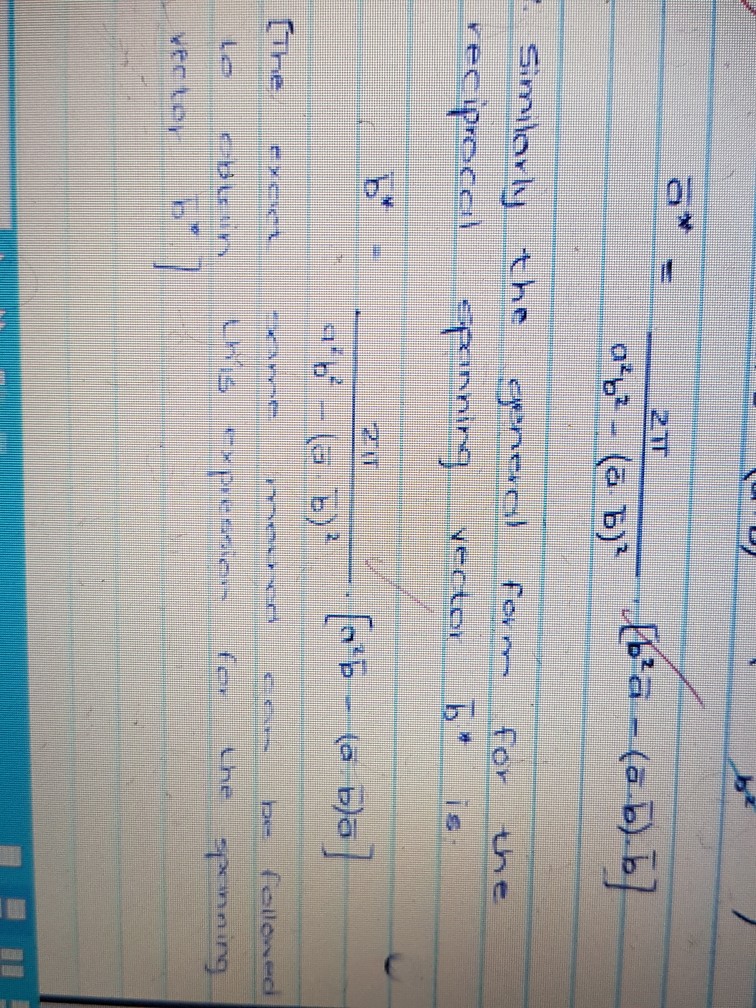 b²
ā* = 2π / a²b² - (ā.b̄)² . [b²ā - (ā.b̄).b̄]
Similarly the general form for the
reciprocal spanning vector b̄* is.
b̄* = 2π / a²b² - (ā.b̄)² . [a²b̄ - (ā.b̄)ā]
[The exact same manner can be followed
to obtain this expression for the spanning
vector b̄*]